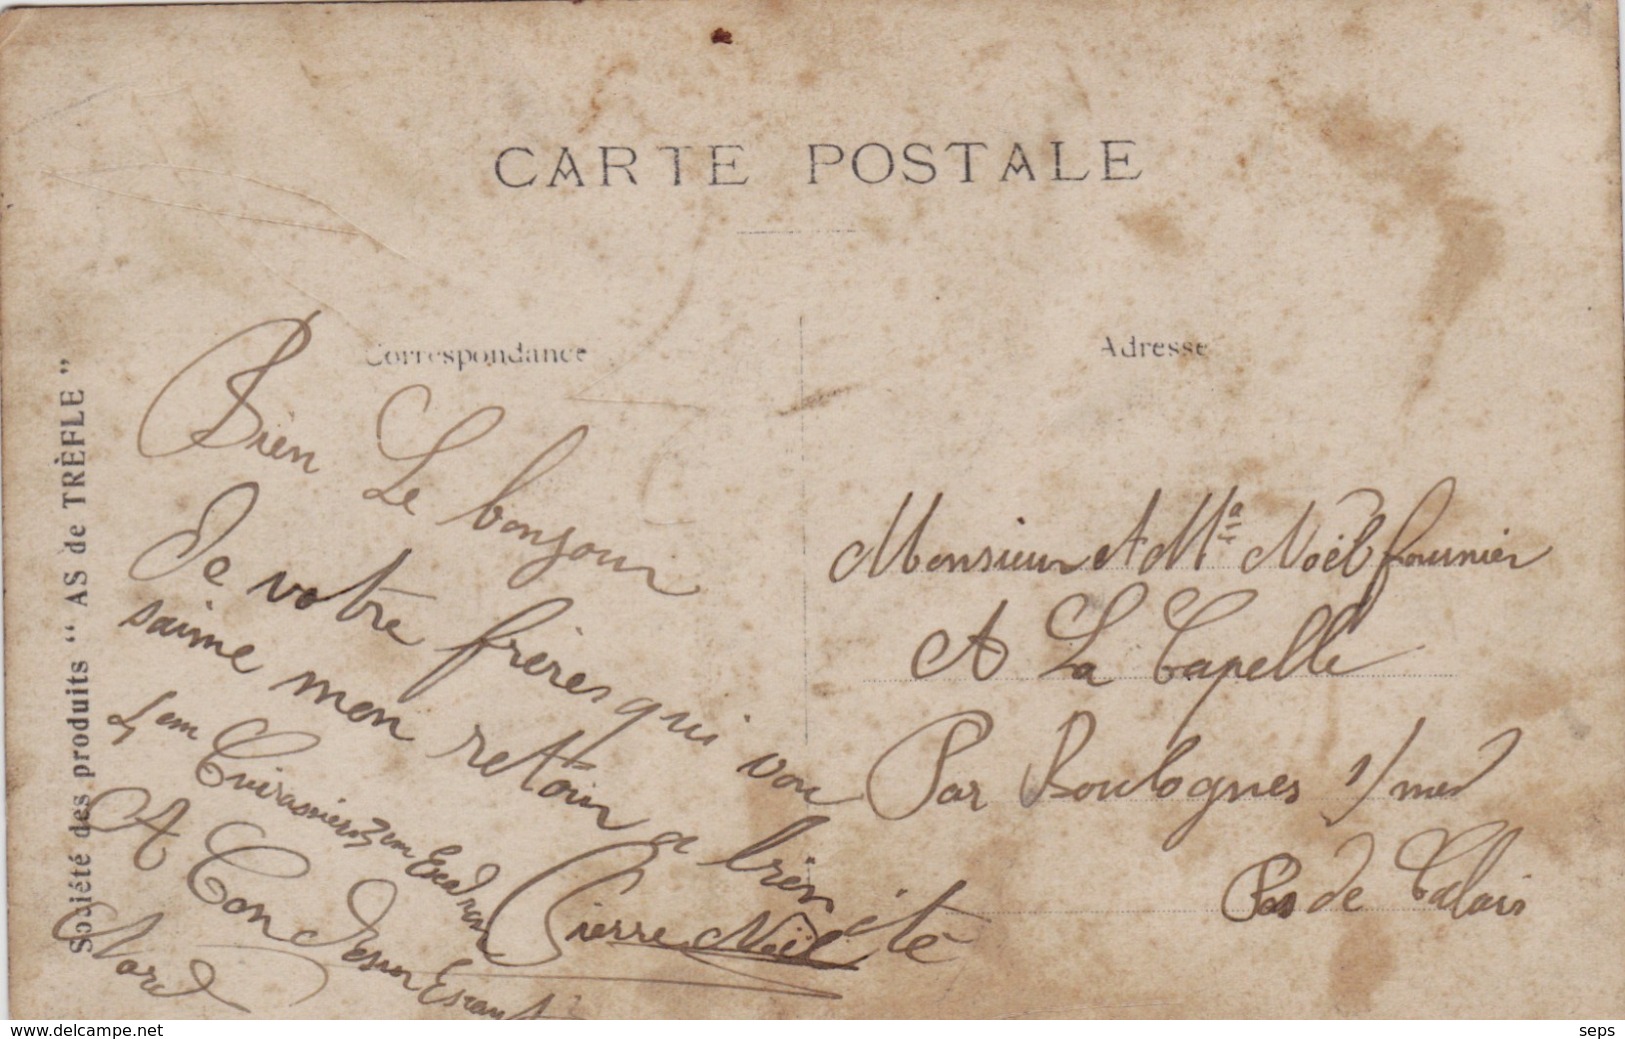 CARTE POSTALE
Correspondance
Adresse
Société des produits " AS de TRÈFLE "
Bien Le bonjour
De votre frères qui vou
saime mon retour a bien
'té
4em Cuirassiers 3em Escadron
A Condé sur Escaut
Nord
Pierre Noël
Monsieur et Ma Noël fournier
A La Capelle
Par Boulognes s/ mer
Pas de Calais
www.delcampe.net
seps